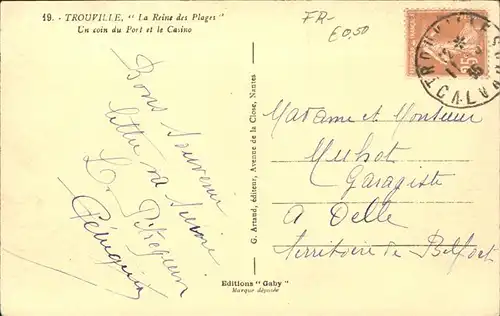 19. - TROUVILLE, "La Reine des Plages"
Un coin du Port et le Casino
FR-
€0,50
Bons souvenirs
lettre va suivre
G. Artaud, éditeur, Avenue de la Close, Nantes
Madame et Monsieur
Muhot
Garagiste
a Delle
Territoire de Belfort
Editions "Gaby"
Marque déposée